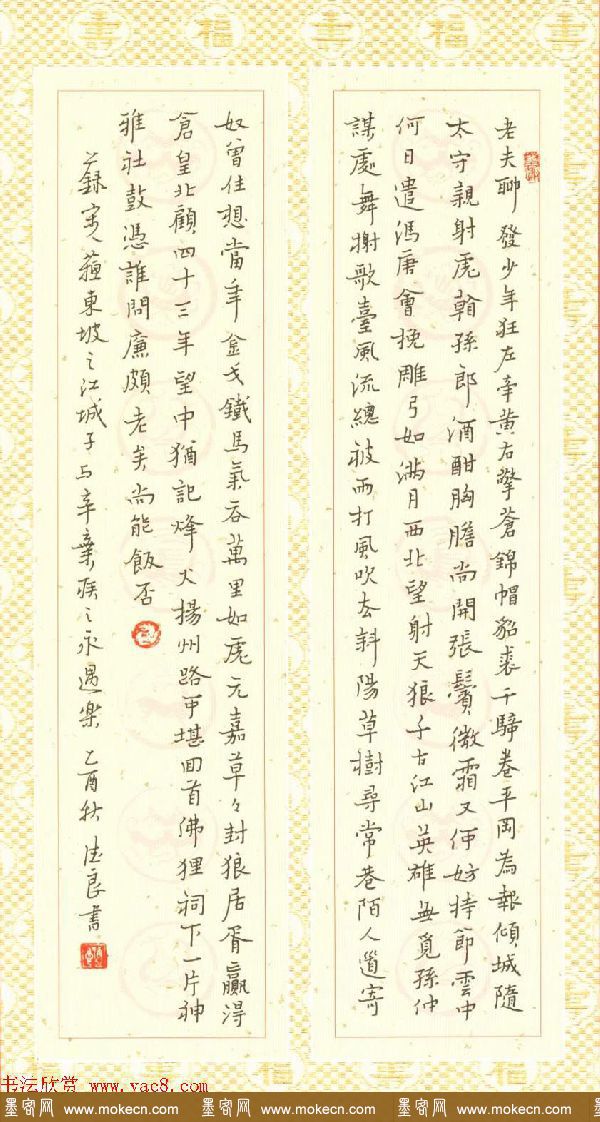 老夫聊發少年狂左牽黃右擎蒼錦帽貂裘千騎卷平岡為報傾城隨
太守親射虎看孫郎酒酣胸膽尚開張鬢微霜又何妨持節雲中
何日遣馮唐會挽雕弓如滿月西北望射天狼千古江山英雄無覓孫仲
謀處舞榭歌臺風流總被雨打風吹去斜陽草樹尋常巷陌人道寄
奴曾住想當年金戈鐵馬氣吞萬里如虎元嘉草々封狼居胥贏得
倉皇北顧四十三年望中猶記烽火揚州路可堪回首佛狸祠下一片神
雅社鼓憑誰問廉頗老矣尚能飯否
錄宋人蘇東坡之江城子与辛棄疾之永遇樂乙酉秋德良書
书法欣赏 www.yac8.com
墨客网 www.mokecn.com 墨客网 www.mokecn.com 墨客网 www.mokecn.com